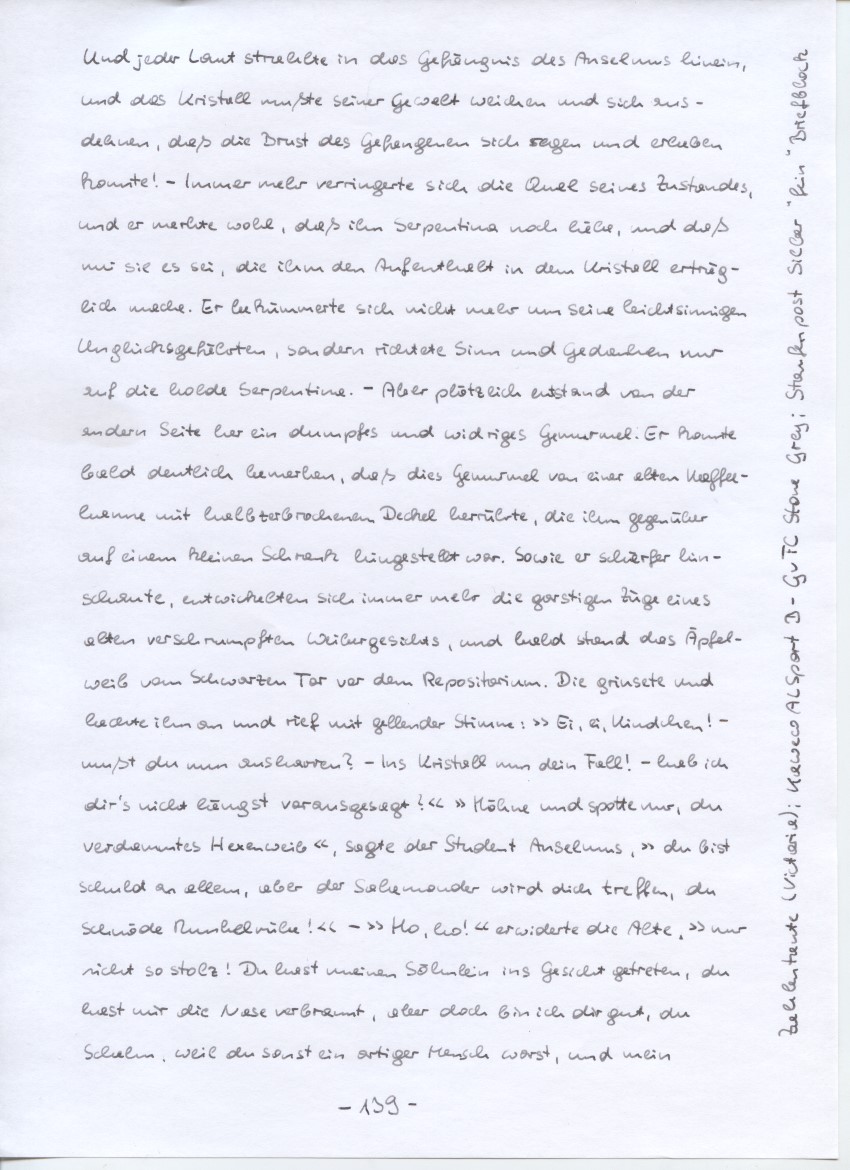 Und jeder Laut strahlte in das Gefängnis des Anselmus hinein,
und das Kristall mußte seiner Gewalt weichen und sich aus-
dehnen, daß die Brust des Gefangenen sich regen und erheben
konnte! – Immer mehr verringerte sich die Qual seines Zustandes,
und er merkte wohl, daß ihn Serpentina noch liebe, und daß
nur sie es sei, die ihm den Aufenthalt in dem Kristall erträg-
lich mache. Er bekümmerte sich nicht mehr um seine leichtsinnigen
Unglücksgefährten, sondern richtete Sinn und Gedanken nur
auf die holde Serpentina. – Aber plötzlich entstand von der
andern Seite her ein dumpfes und widriges Gemurmel. Er konnte
bald deutlich bemerken, daß dies Gemurmel von einer alten Kaffee-
kanne mit halbzerbrochenem Deckel herrührte, die ihm gegenüber
auf einem kleinen Schrank hingestellt war. Sowie er schärfer hin-
schaute, entwickelten sich immer mehr die garstigen Züge eines
alten verschrumpften Weibergesichts, und bald stand das Äpfel-
weib vom Schwarzen Tor vor dem Repositorium. Die grinsete und
lachte ihn an und rief mit gellender Stimme: »Ei, ei, Kindchen! –
mußt du nun ausharren? – Ins Kristall nun dein Fall! – hab ich
dir's nicht längst vorausgesagt?« »Höhne und spotte nur, du
verdammtes Hexenweib«, sagte der Student Anselmus, »du bist
schuld an allem, aber der Salamander wird dich treffen, du
schnöde Runkelrübe!« – »Ho, ho!« erwiderte die Alte, »nur
nicht so stolz! Du hast meinen Söhnlein ins Gesicht getreten, du
hast mir die Nase verbrannt, aber doch bin ich dir gut, du
Schelm, weil du sonst ein artiger Mensch warst, und mein
– 139 –
Zahlentante (Victoria); Kaweco AL Sport B – GvFC Stone Grey; Staufenpost Silber "fein" Briefblock